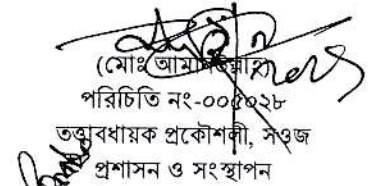 (মোঃ আমানউল্লাহ)
পরিচিতি নং-০০৫০২৮
তত্ত্বাবধায়ক প্রকৌশলী, সওজ
প্রশাসন ও সংস্থাপন